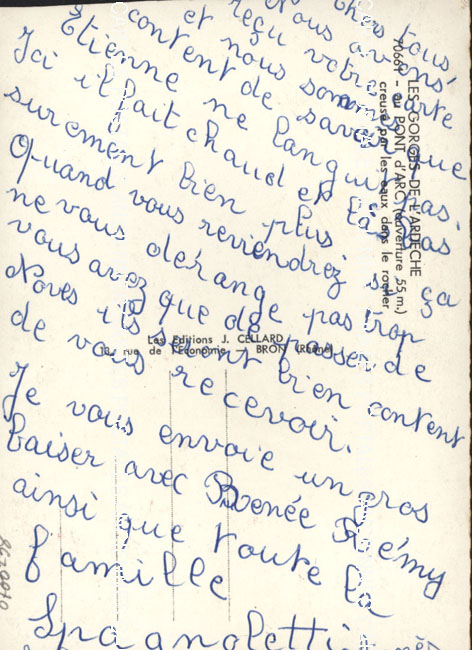 chers tous,
Nous avons
reçu votre carte
et nous sommes
content de savoir que
Etienne ne languis pas.
Ici il fait chaud et là bas
surement bien plus.
Quand vous reviendrez si ça
ne vous dérange pas trop
vous avez que de passer de
Noves ils seront bien content
de vous recevoir.
Je vous envoie un gros
baiser avec Renée Rémy
ainsi que toute la
famille
Spagnoletti
LES GORGES DE L'ARDECHE
70661 - au PONT d'ARC (ouverture 55 m.)
creusé par les eaux dans le rocher
Les Editions J. CELLARD
rue de l'Economie BRON (Rhône)